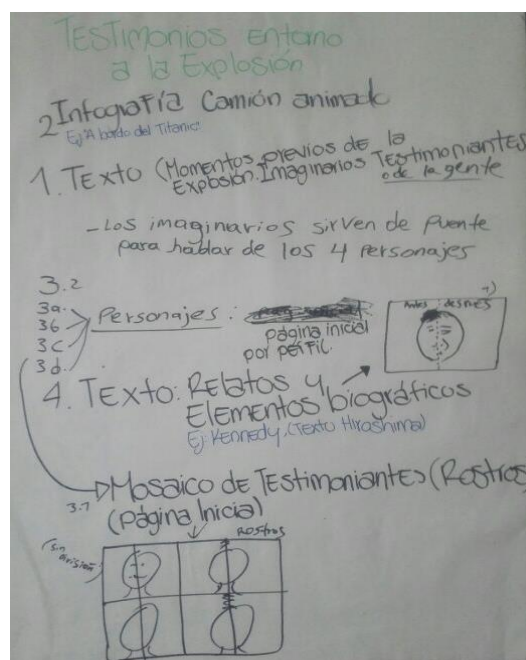 Testimonios entorno
a la Explosión
2 Infografía Camión animado
Ej "A bordo del Titanic"
1. Texto (Momentos previos de la
Explosión. Imaginarios Testimoniantes
o de la gente
- Los imaginarios sirven de puente
para hablar de los 4 personajes
3.2
3a.
3b
3c
3d.
Personajes :
página inicial
por perfil.
Antes después
4. Texto: Relatos y
Elementos biográficos
Ej: Kennedy. (Texto Hiroshima)
3.1
Mosaico de Testimoniantes (Rostros
(página Inicial)
Rostros
(sin
división)